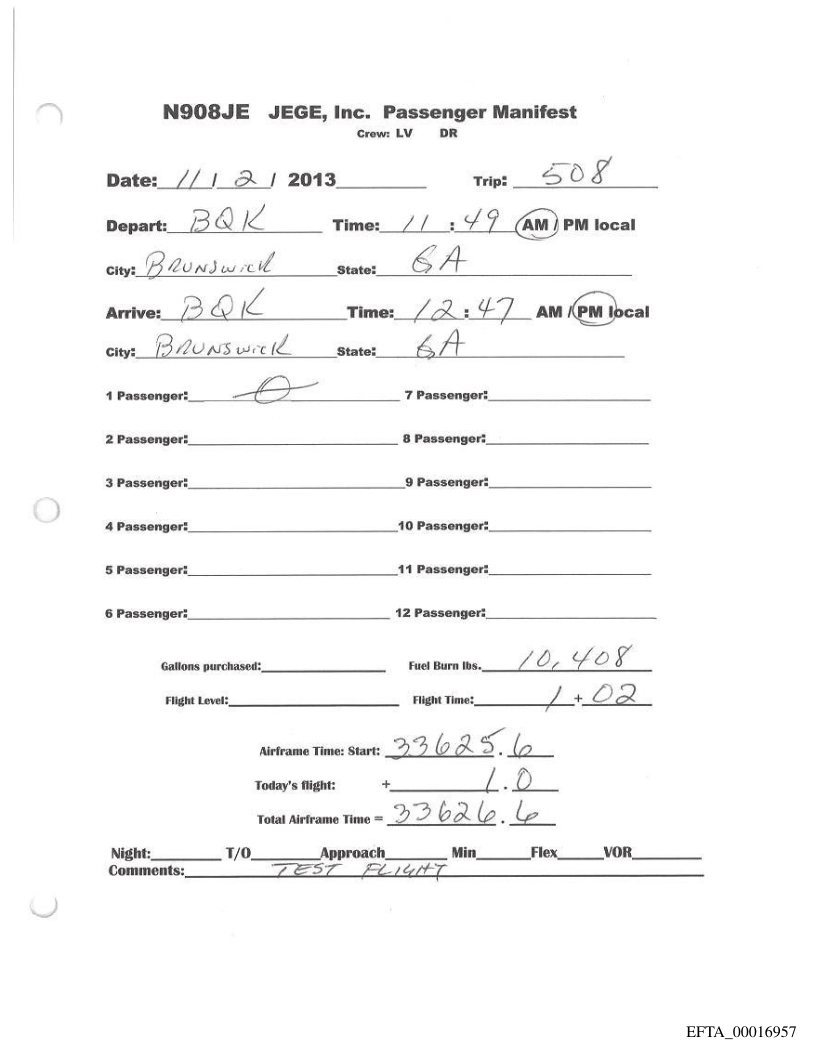 N908JE JEGE, Inc. Passenger Manifest
Crew: LV DR
Date: 11 / 2 / 2013 Trip: 508
Depart: BQK Time: 11 : 49 AM / PM local
City: BRUNSWICK State: GA
Arrive: BQK Time: 12 : 47 AM / PM local
City: BRUNSWICK State: GA
1 Passenger: 0 7 Passenger:
2 Passenger: 8 Passenger:
3 Passenger: 9 Passenger:
4 Passenger: 10 Passenger:
5 Passenger: 11 Passenger:
6 Passenger: 12 Passenger:
Gallons purchased: Fuel Burn lbs. 10,408
Flight Level: Flight Time: 1 + 02
Airframe Time: Start: 33625.6
Today's flight: + 1.0
Total Airframe Time = 33626.6
Night: T/O Approach Min Flex VOR
Comments: TEST FLIGHT
EFTA_00016957